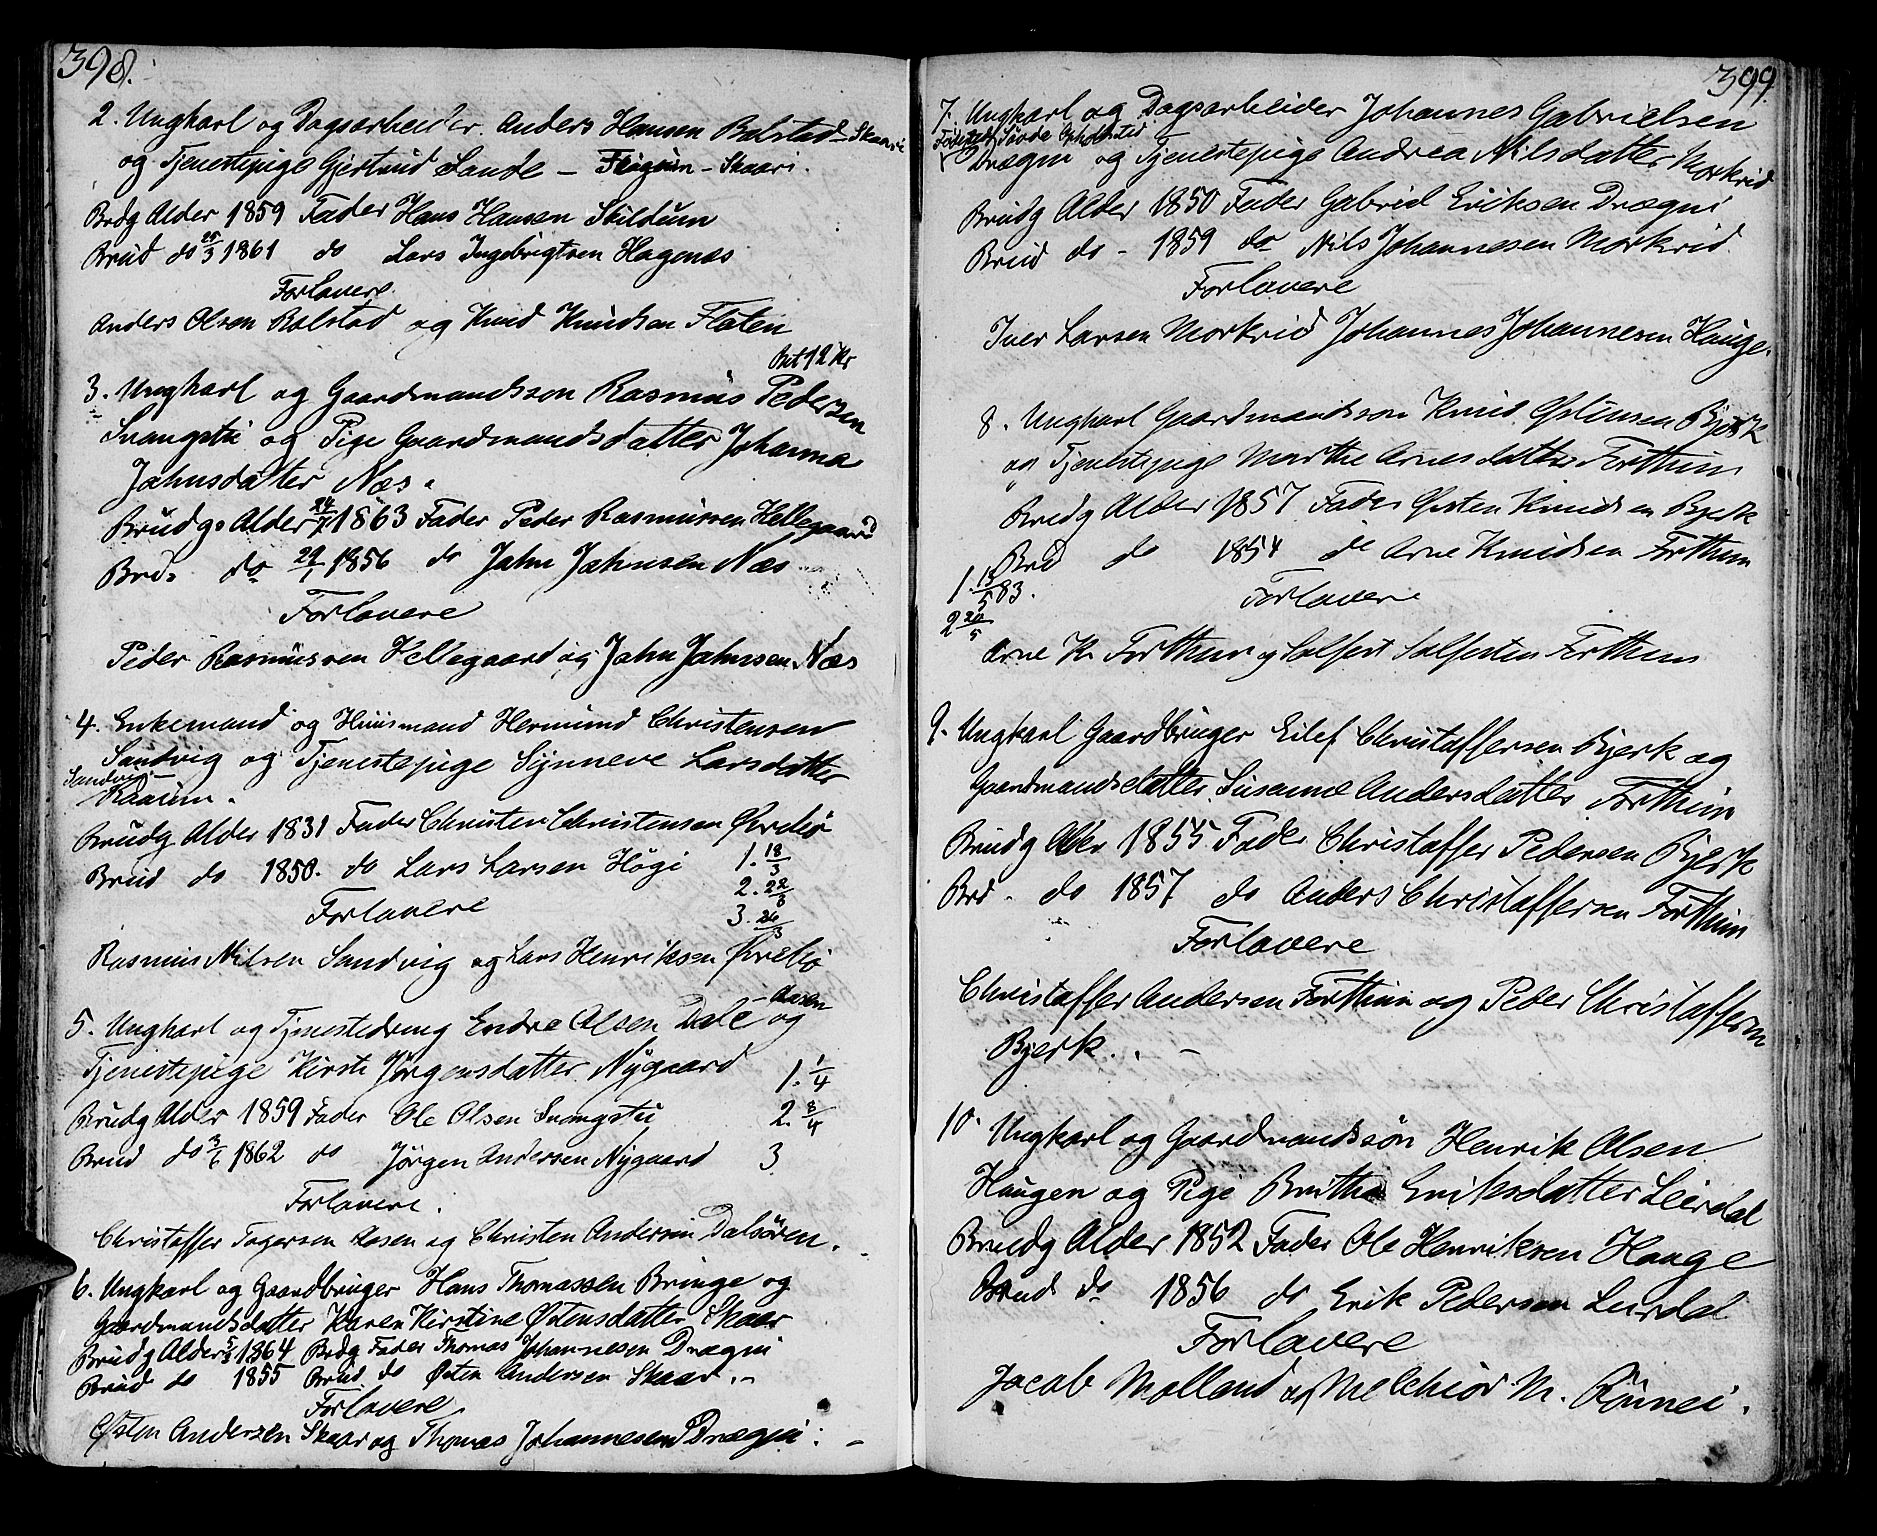 398.
2. Ungkarl og Dagsarbeider Anders Hansen Bolstad - Skaari
og Tjenestepige Gjertrud Lande - - Skaari.
Brdg Alder 1859 Fader Hans Hansen Skildum
Brud do 25/3 1861 do Lars Ingebrigtsen Hagenæs
Forlovere.
Anders Olsen Bolstad og Knud Knudsen Flaten
Bet 12 Kr
3. Ungkarl og Gaardmandssøn Rasmus Pedersen
Svangstu og Pige Gaardmandsdatter Johanna
Jahnsdatter Næs.
Brudgs Alder 24/7 1863 Fader Peder Rasmussen Hellegaard
Brd. do 29/1 1856 do Jahn Jahnsen Næs
Forlovere
Peder Rasmussen Hellegaard og Jahn Jahnsen Næs
4. Enkemand og Huusmand Hermund Christensen
Sandvig og Tjenestepige Synneve Larsdatter
Sandvig -
Raaum.
Brudg Alder 1831 Fader Christen Christensen Øvrebø
Brud do 1850. do Lars Larsen Høgi 1. 18/3
2. 22/3
Forlovere 3. 26/3
Rasmus Nilsen Sandvig og Lars Henriksen Øvrebø
- Aasen
5. Ungkarl og Tjenestedreng Endre Olsen Dale og
Tjenestepige Kirsti Jørgensdatter Nygaard 1. 1/4
Brudg Alder 1859 Fader Ole Olsen Svangstu 2. 8/4
Brud do 3/6 1862 do Jørgen Andersen Nygaard 3
Forlovere.
Christaffer Tagersen Aasen og Christen Andersen Dalsøren.
6. Ungkarl og Gaardbruger Hans Thomassen Bringe og
Gaardmandsdatter Karen Kirstine Østensdatter Skaar
Brudg Alder 5/3 1864 Brdg Fader Thomas Johannesen Drægni
Brud do 1855 Brud do Østen Andersen Skaar. -
Forlovere
Østen Andersen Skaar og Thomas Johannesen Drægni. -
399.
7. Ungkarl og Dagsarbeider Johannes Gabrielsen
Drægni og Tjenestepige Andrea Nilsdatter Morkrid
Brudg Alder 1850 Fader Gabriel Eriksen Drægni
Brud do - 1859 do Nils Johannesen Morkrid
Forlovere
Iver Larsen Morkrid Johannes Johannesen Hauge.
8. Ungkarl Gaardmandssøn Knud Østensen Bjerk
og Tjenestepige Marthe Arnesdatter Forthun
Brudg Alder 1857 Fader Østen Knudsen Bjerk
Brd do 1854 do Arne Knudsen Forthun
1. 13/5 83. Forlovere
2 20/5
Arne K. Forthun og Solfest Solfesten Forthun
9. Ungkarl Gaardbruger Eilef Christaffersen Bjerk og
Gaardmandsdatter Susanne Andersdatter Forthun
Brudg Alder 1855 Fader Christaffer Pedersen Bjerk
Brd. do 1857 do Anders Christaffersen Forthun
Forlovere
Christaffer Andersen Forthun og Peder Christaffersen
Bjerk. . -
10. Ungkarl og Gaardmandssøn Henrik Olsen
Haugen og Pige Brithe Eriksdatter Leirdal
Brudg Alder 1852 Fader Ole Henriksen Hauge
Brud do 1856 do Erik Pedersen Leirdal
Forlovere
Jacob Molland og Melchior M. Rønnei.